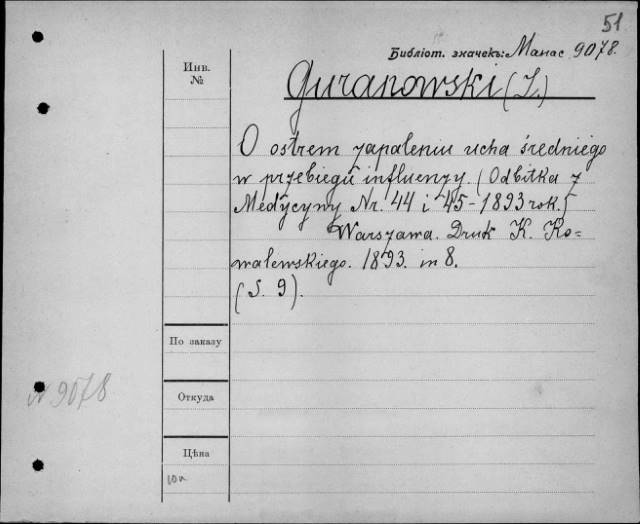 51
Библіот. значекъ: Манас 9078.
Инв.
№
Guranowski (L.)
O ostrem zapaleniu ucha średniego
w przebiegu influenzy. (Odbitka z
Medycyny Nr. 44 i 45-1893 rok.)
Warszawa. Druk K. Ko=
walewskiego. 1893. in 8.
(S. 9).
По заказу
№ 9078
Откуда
Цѣна